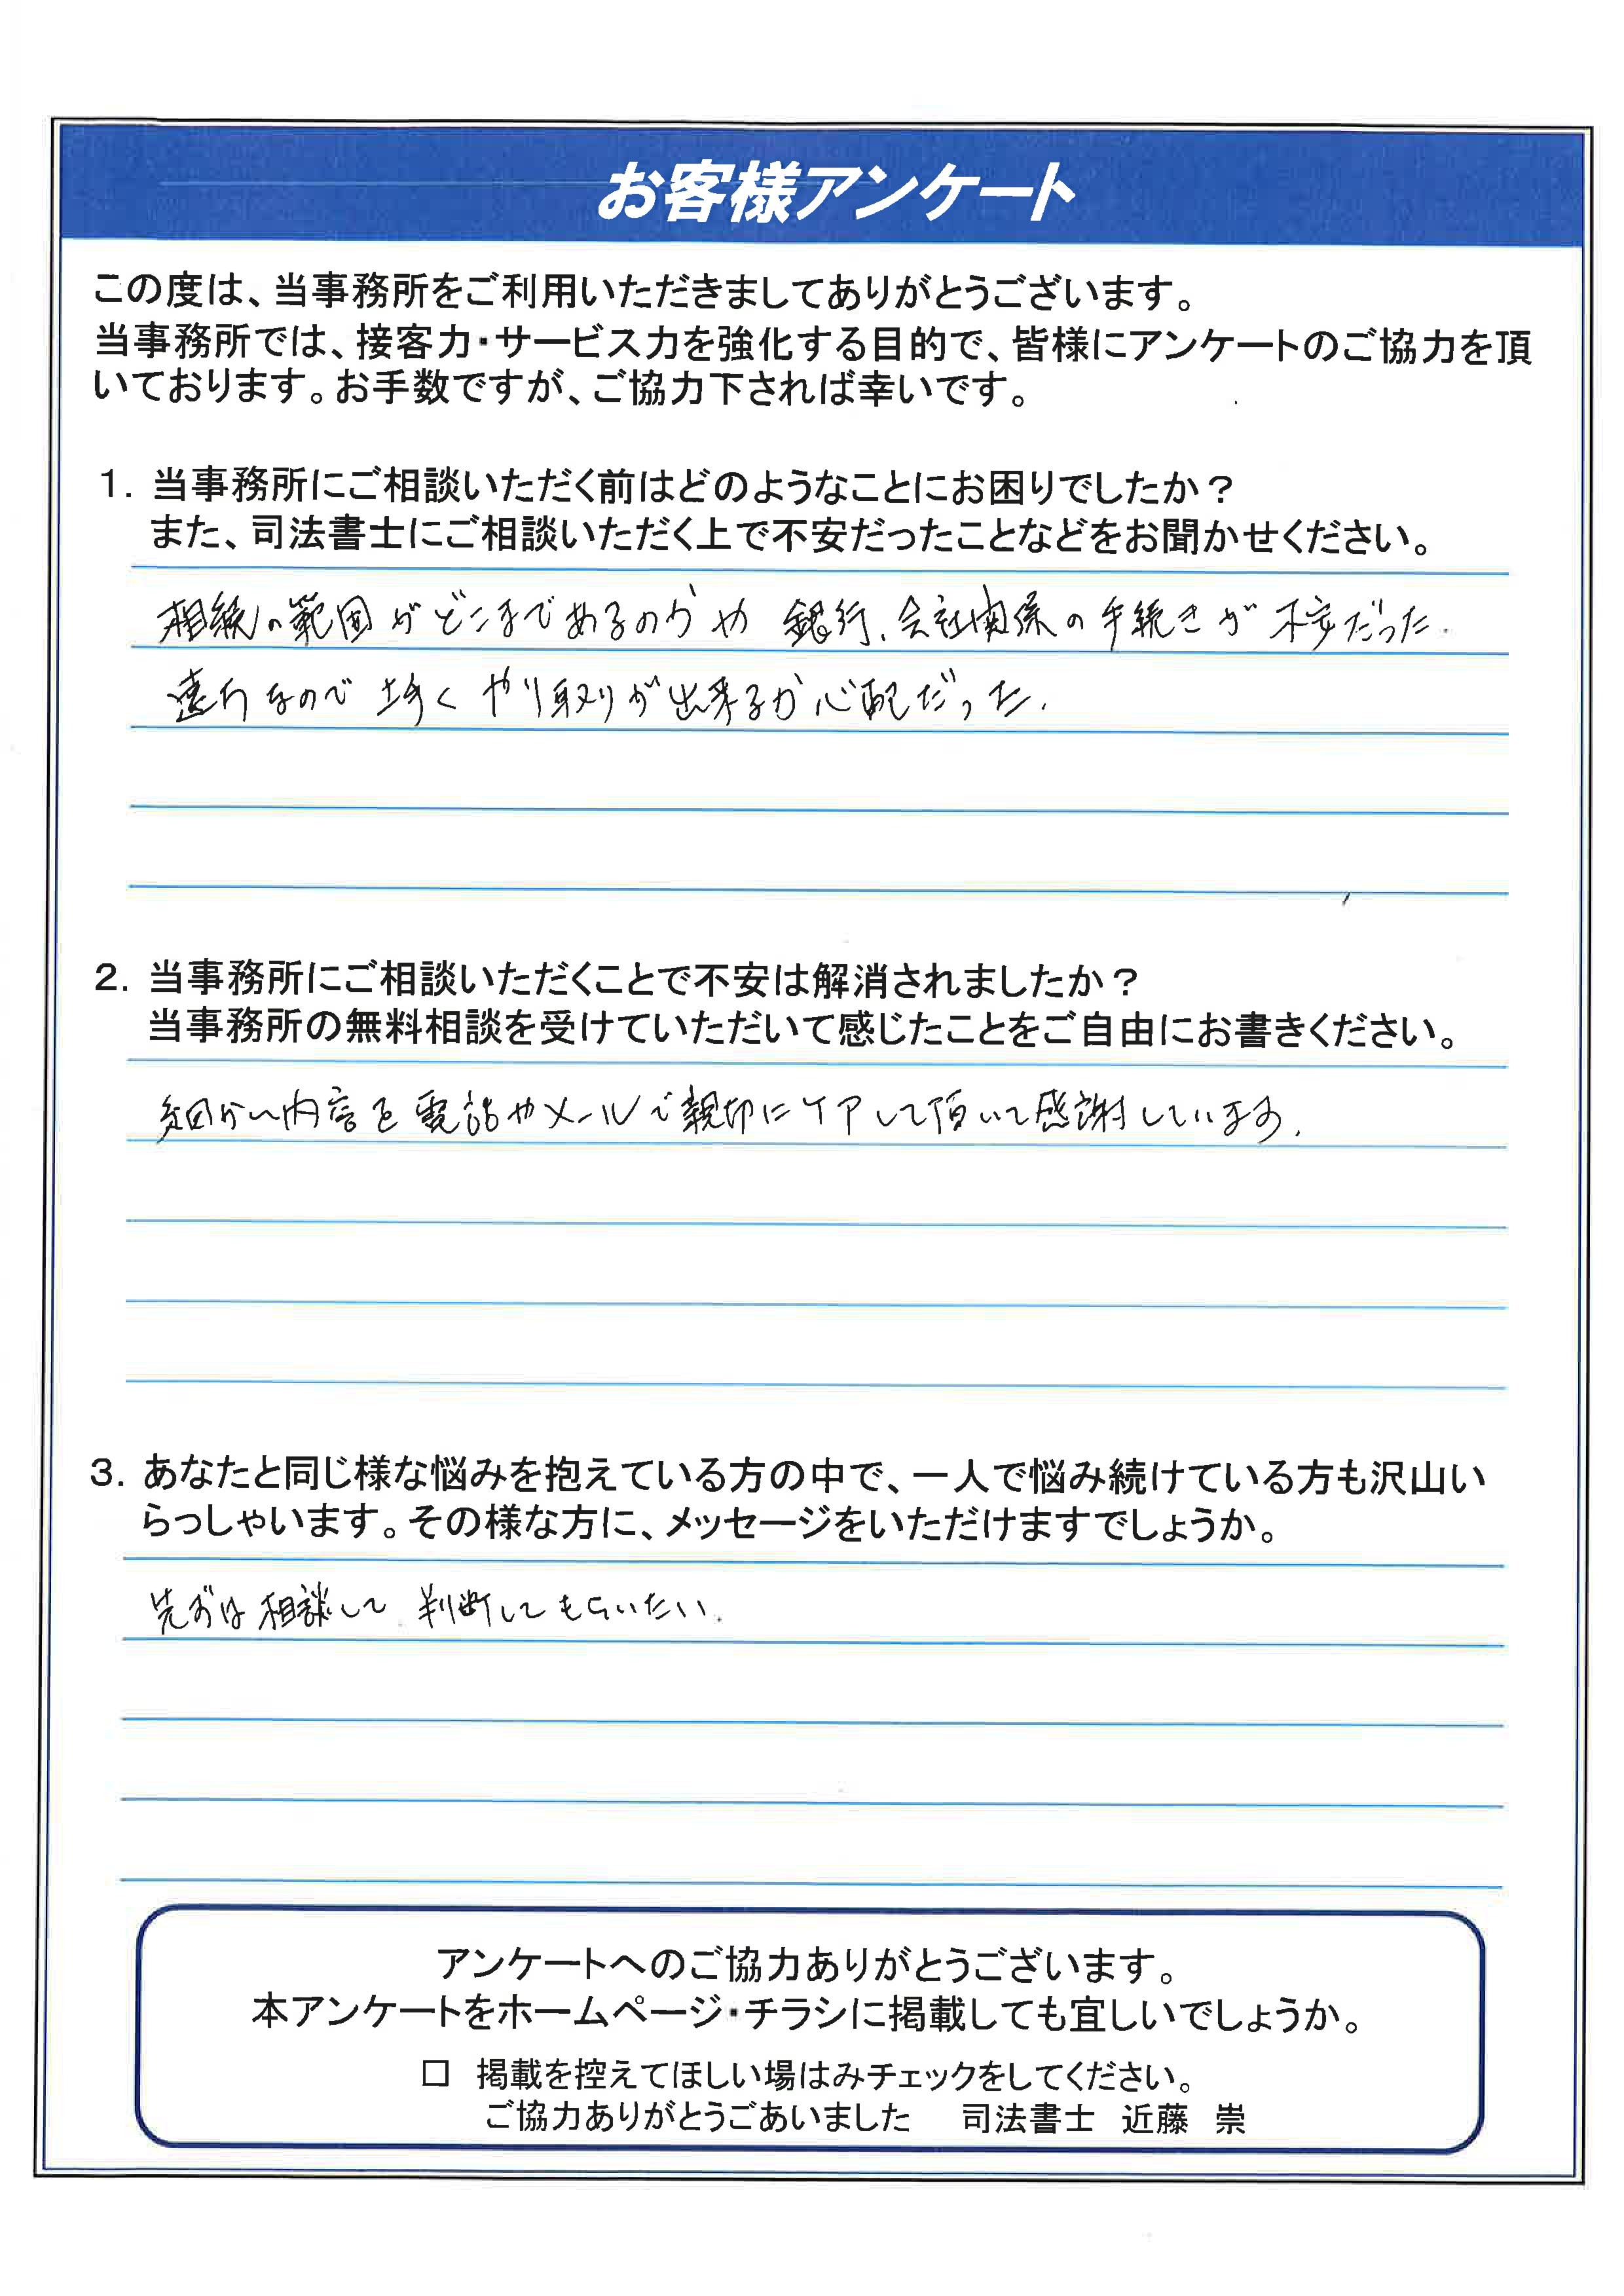 お客様アンケート
この度は、当事務所をご利用いただきましてありがとうございます。
当事務所では、接客力・サービス力を強化する目的で、皆様にアンケートのご協力を頂
いております。お手数ですが、ご協力下されば幸いです。
1. 当事務所にご相談いただく前はどのようなことにお困りでしたか？
また、司法書士にご相談いただく上で不安だったことなどをお聞かせください。
相続の範囲がどこまであるのかや 銀行、会社関係の手続きが 不安だった.
遠方なので 上手く やり取りが出来るか心配だった.
2. 当事務所にご相談いただくことで不安は解消されましたか？
当事務所の無料相談を受けていただいて感じたことをご自由にお書きください。
細かい内容を電話やメールで親切にケアして頂いて感謝しています.
3. あなたと同じ様な悩みを抱えている方の中で、一人で悩み続けている方も沢山い
らっしゃいます。その様な方に、メッセージをいただけますでしょうか。
先ずは相談して 判断してもらいたい.
アンケートへのご協力ありがとうございます。
本アンケートをホームページ・チラシに掲載しても宜しいでしょうか。
□ 掲載を控えてほしい場はみチェックをしてください。
ご協力ありがとうごあいました 司法書士 近藤 崇